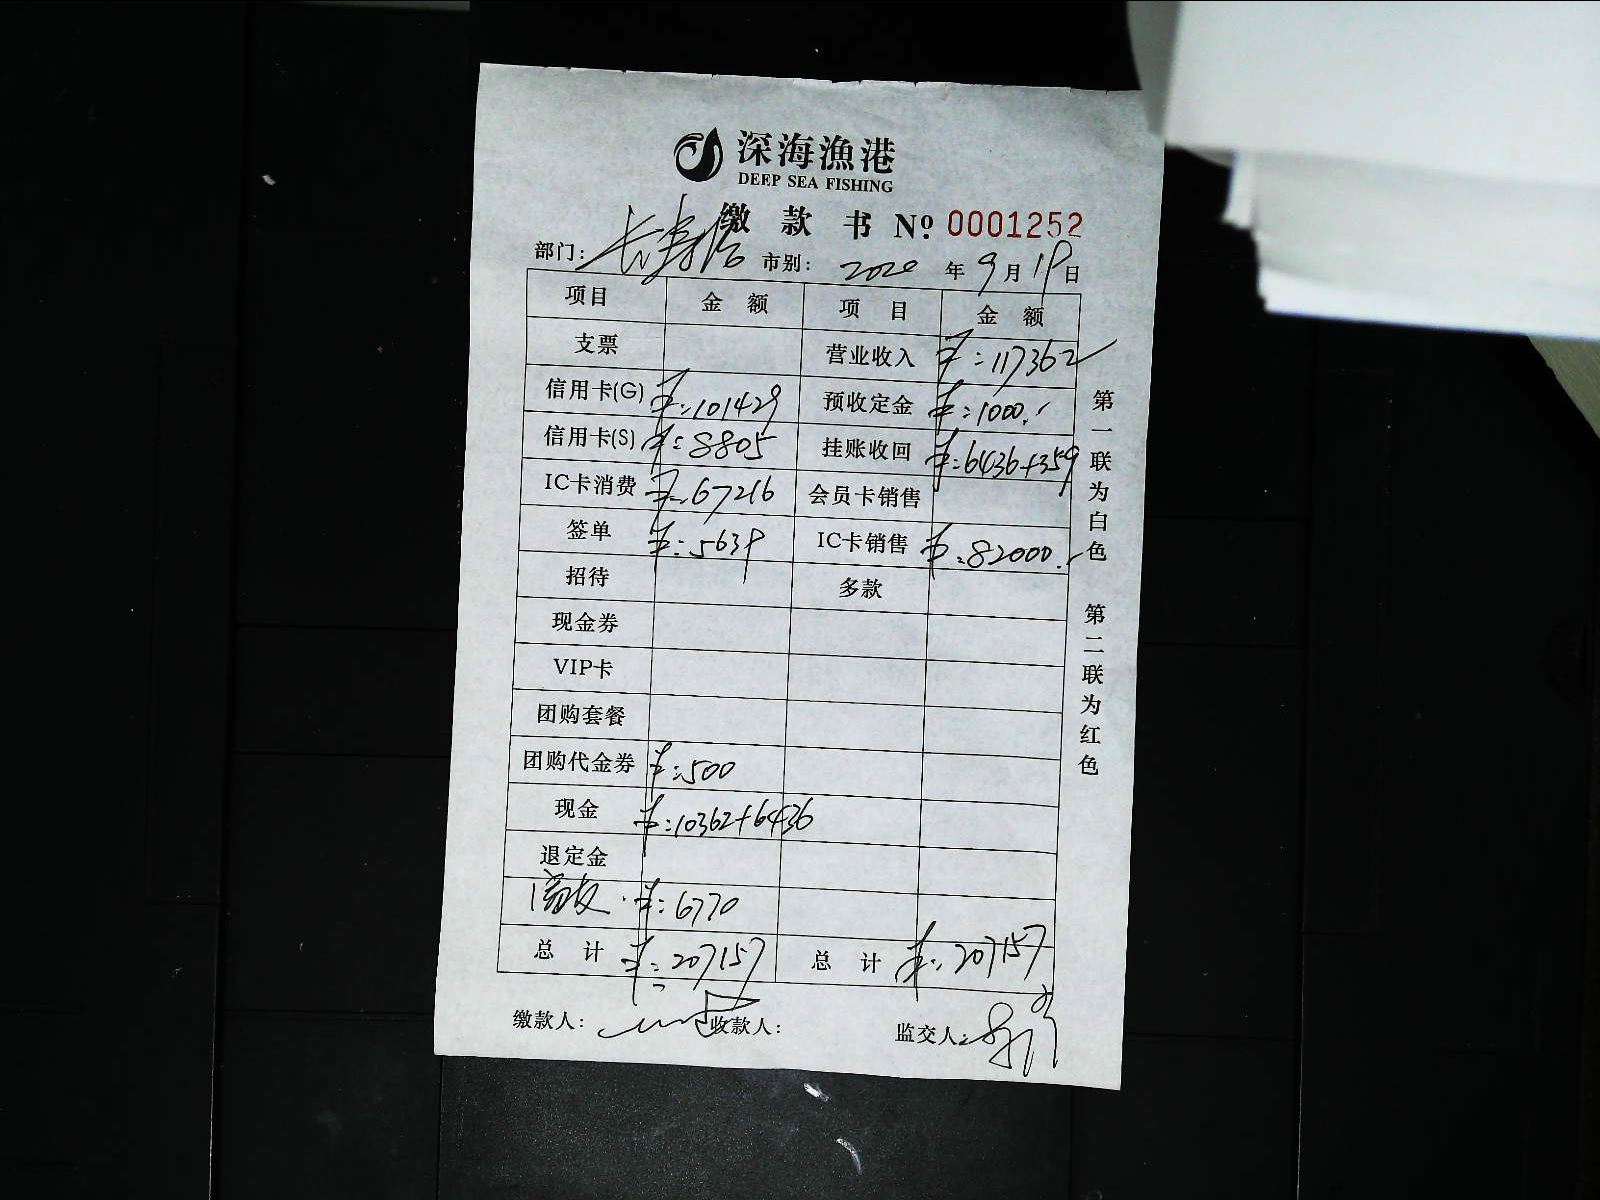 深海漁港
DEEP SEA FISHING
缴款书 Nº 0001252
部门: 长寿 市别: 2020年9月19日
项目 金额 项目 金额
支票 营业收入 ¥:117362
信用卡(G) ¥:101429 预收定金 ¥:1000.
信用卡(S) ¥:8805 挂账收回 ¥:6436+359
IC卡消费 ¥:67216 会员卡销售
签单 ¥:5639 IC卡销售 ¥:82000.
招待 多款
现金券
VIP卡
团购套餐
团购代金券 ¥:500
现金 ¥:10362+6436
退定金
¥:6770
总计 ¥:207157 总计 ¥:207157
缴款人: 收款人: 监交人:
第一联为白色 第二联为红色